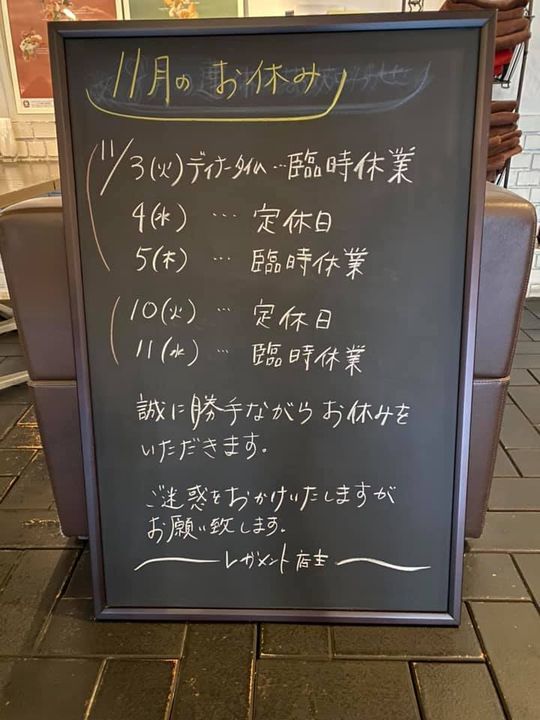 11月のお休み
11/3(火)ディナータイム…臨時休業
4(水) … 定休日
5(木) … 臨時休業
10(火) … 定休日
11(水) … 臨時休業
誠に勝手ながらお休みを
いただきます。
ご迷惑をおかけいたしますが
お願い致します。
レガメント店主